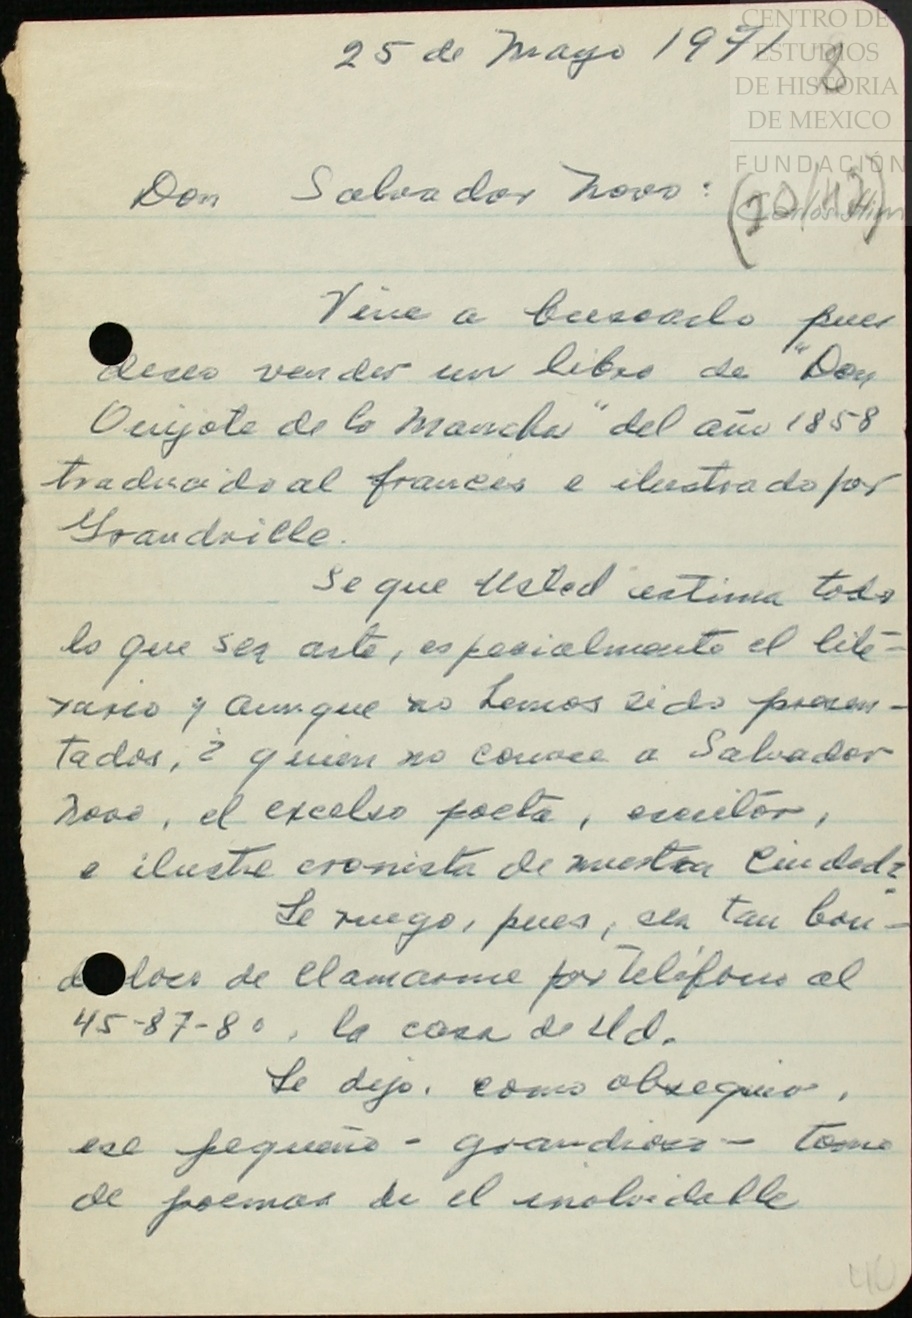 25 de Mayo 1971
8
CENTRO DE
ESTUDIOS
DE HISTORIA
DE MEXICO
FUNDACIÓN
Carlos Slim
Don Salvador Novo:
Vine a buscarlo pues
deseo vender un libro de "Don
Quijote de la Mancha" del año 1858
traducido al francés e ilustrado por
Grandville.
Se que Usted estima todo
lo que sea arte, especialmente el lite-
rario y aunque no hemos sido presen-
tados, ¿quien no conoce a Salvador
Novo, el excelso poeta, escritor,
e ilustre cronista de nuestra Ciudad?
Le ruego, pues, sea tan bon-
dadoso de llamarme por Teléfono al
45-87-80, la casa de Ud.
Le dejo, como obsequio,
ese pequeño - grandioso - tomo
de poemas de el inolvidable
40